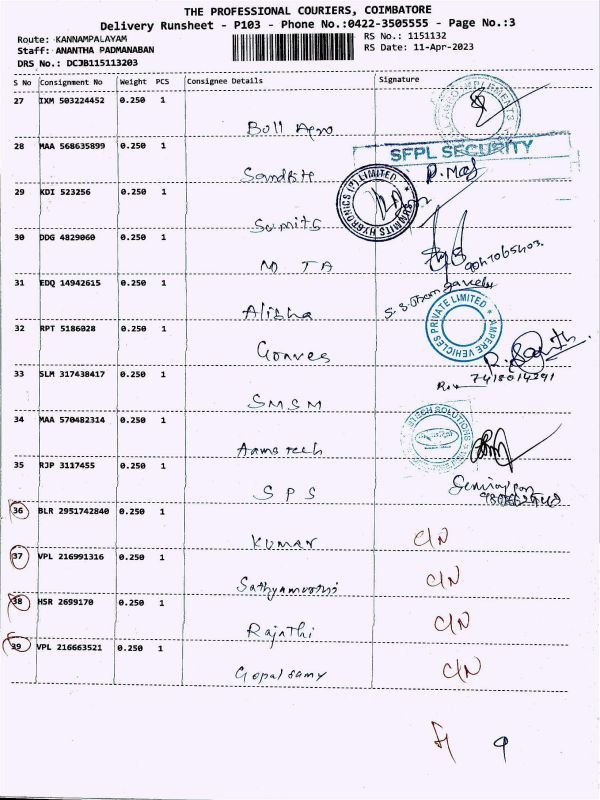 THE PROFESSIONAL COURIERS, COIMBATORE
Delivery Runsheet - P103 - Phone No.:0422-3505555 - Page No.:3
Route: KANNAMPALAYAM
RS No.: 1151132
Staff: ANANTHA PADMANABAN
RS Date: 11-Apr-2023
DRS No.: DCJB115113203
S No Consignment No Weight PCS Consignee Details Signature
27 IXM 503224452 0.250 1
28 MAA 568635899 0.250 1
SFPL SECURITY
Sandfite
29 KDI 523256 0.250 1
Sumits
30 DDG 4829060 0.250 1
M TA
31 EDQ 14942615 0.250 1
Alisha
AMPERE VEHICLES PRIVATE LIMITED
32 RPT 5186028 0.250 1
7418014291
33 SLM 317438417 0.250 1
SMSM
34 MAA 570482314 0.250 1
Aamstech
35 RJP 3117455 0.250 1
SPS
36 BLR 2951742840 0.250 1
Kumar C/N
37 VPL 216991316 0.250 1
Sathyamoorthi C/N
38 HSR 2699170 0.250 1
Rajathi C/N
39 VPL 216663521 0.250 1
Gopalsamy C/N